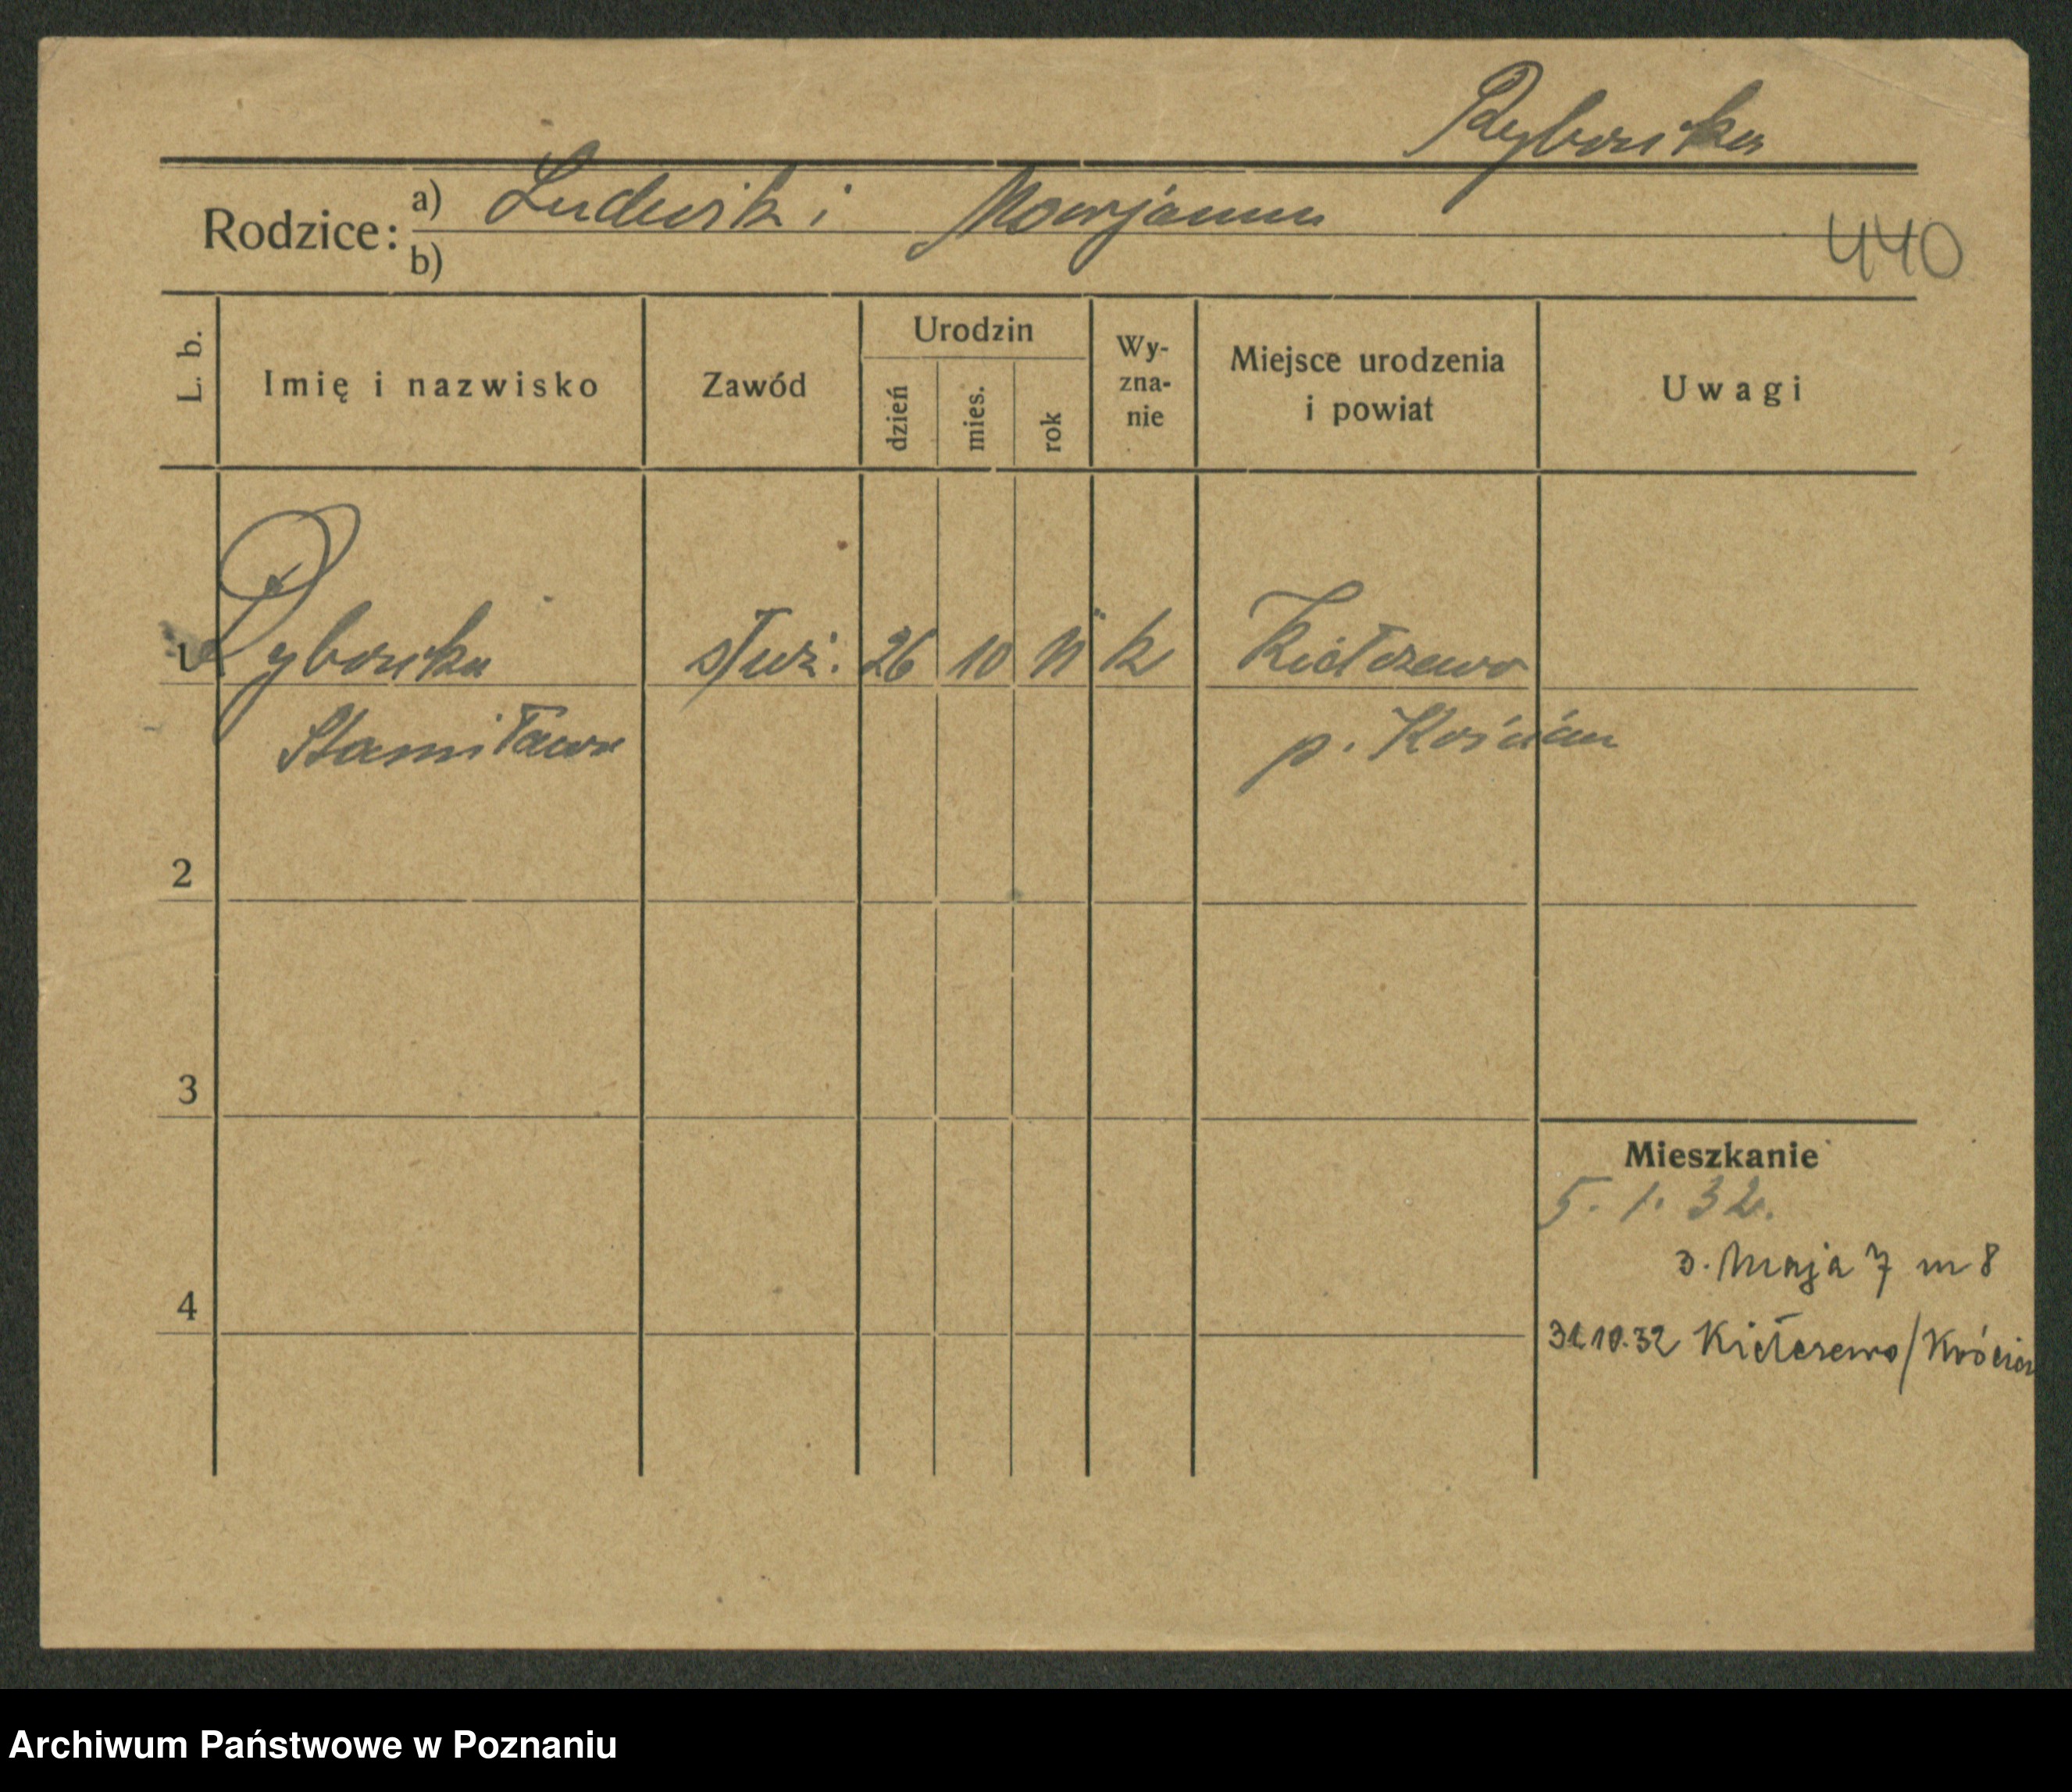 Ryborska
Rodzice: a) Ludwik i Marjanna
b)
440
L. b.
Imię i nazwisko
Zawód
Urodzin
dzień
mies.
rok
Wy-
zna-
nie
Miejsce urodzenia
i powiat
Uwagi
1 Ryborska służ. 26 10 11 k Kiełczewo
Stanisława p. Kościan
2
3
Mieszkanie
5. 1. 32.
3. Maja 7 m 8
4
31.10.32 Kiełczewo/Kościan
Archiwum Państwowe w Poznaniu